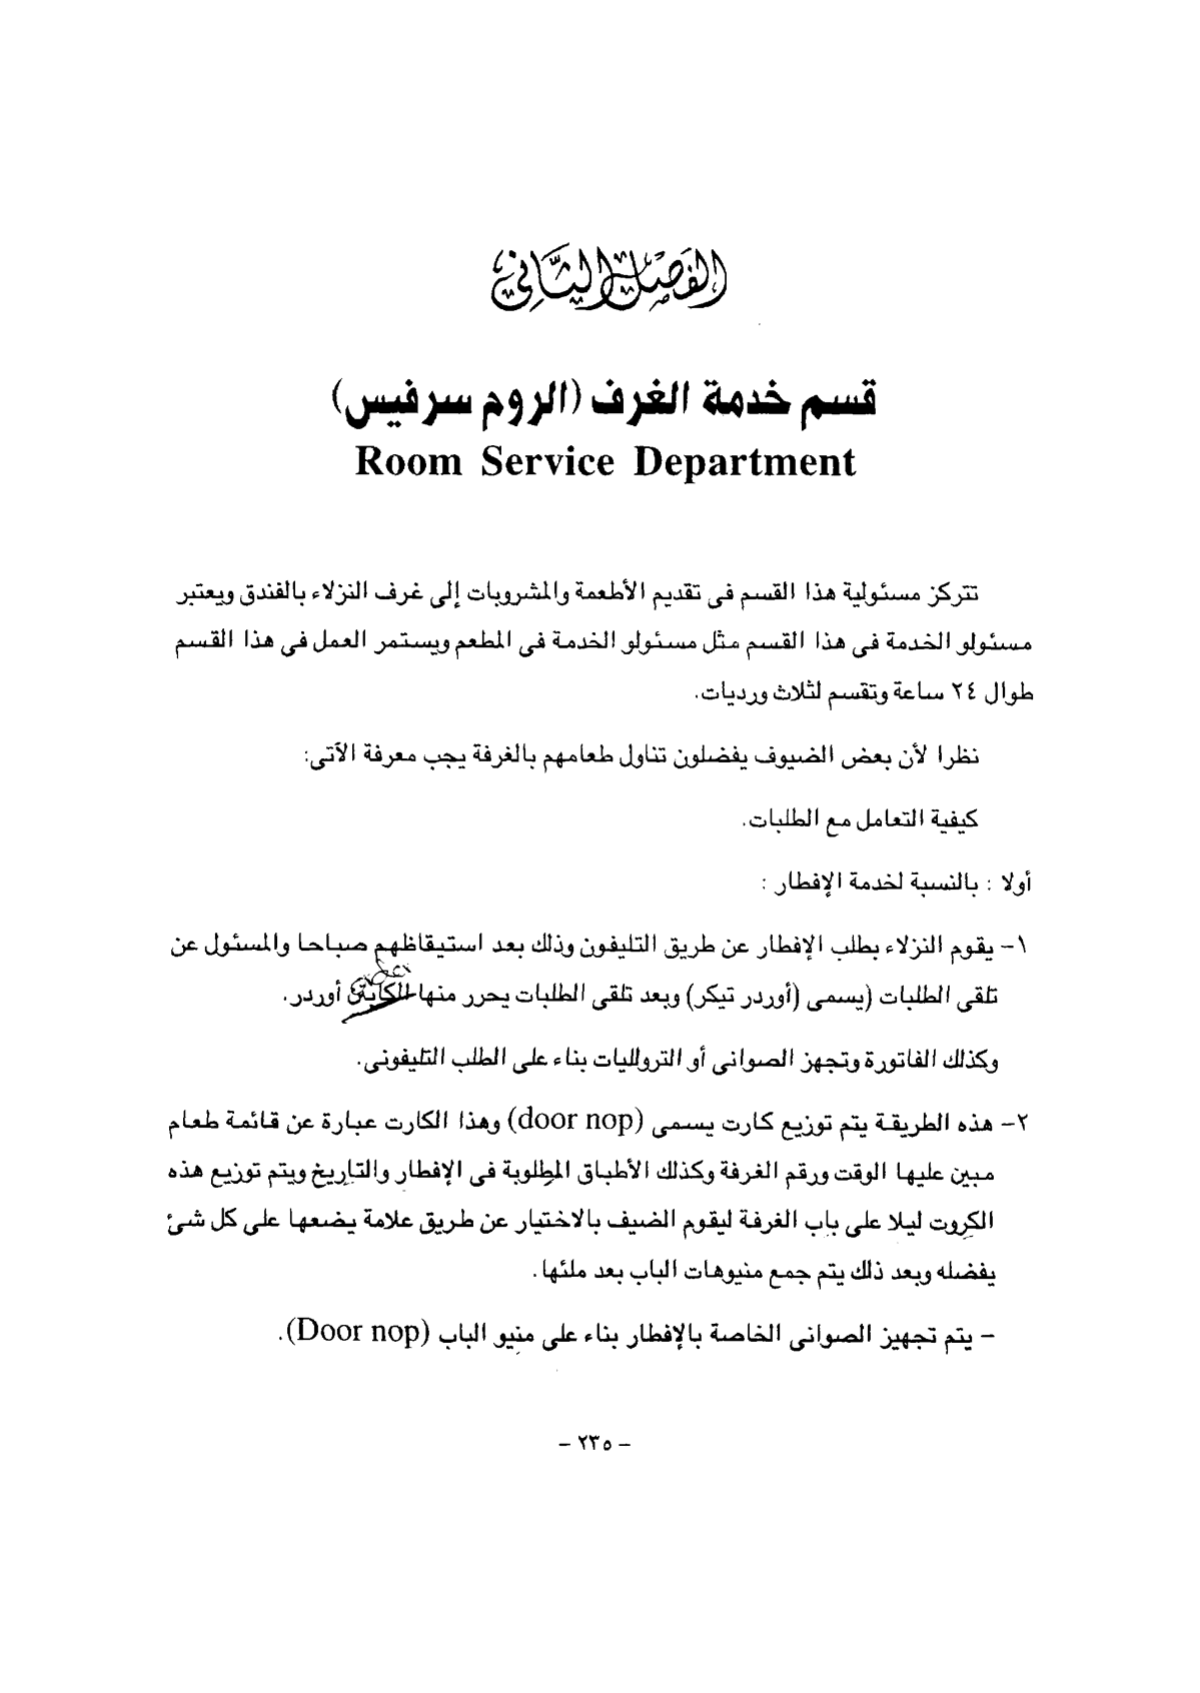 الفصل الثاني
قسم خدمة الغرف (الروم سرفيس)
Room Service Department
تتركز مسئولية هذا القسم فى تقديم الأطعمة والمشروبات إلى غرف النزلاء بالفندق ويعتبر
مسئولو الخدمة فى هذا القسم مثل مسئولو الخدمة فى المطعم ويستمر العمل فى هذا القسم
طوال ٢٤ ساعة وتقسم لثلاث ورديات.
نظرا لأن بعض الضيوف يفضلون تناول طعامهم بالغرفة يجب معرفة الآتى:
كيفية التعامل مع الطلبات.
أولا : بالنسبة لخدمة الإفطار :
١- يقوم النزلاء بطلب الإفطار عن طريق التليفون وذلك بعد استيقاظهم صباحا والمسئول عن
تلقى الطلبات (يسمى (أوردر تيكر) وبعد تلقى الطلبات يحرر منها الكابتن أوردر.
وكذلك الفاتورة وتجهز الصوانى أو الترولليات بناء على الطلب التليفونى.
٢- هذه الطريقة يتم توزيع كارت يسمى (door nop) وهذا الكارت عبارة عن قائمة طعام
مبين عليها الوقت ورقم الغرفة وكذلك الأطباق المطلوبة فى الإفطار والتاريخ ويتم توزيع هذه
الكروت ليلا على باب الغرفة ليقوم الضيف بالاختيار عن طريق علامة يضعها على كل شئ
يفضله وبعد ذلك يتم جمع منيوهات الباب بعد ملئها.
- يتم تجهيز الصوانى الخاصة بالإفطار بناء على منيو الباب (Door nop).
- ٢٣٥ -